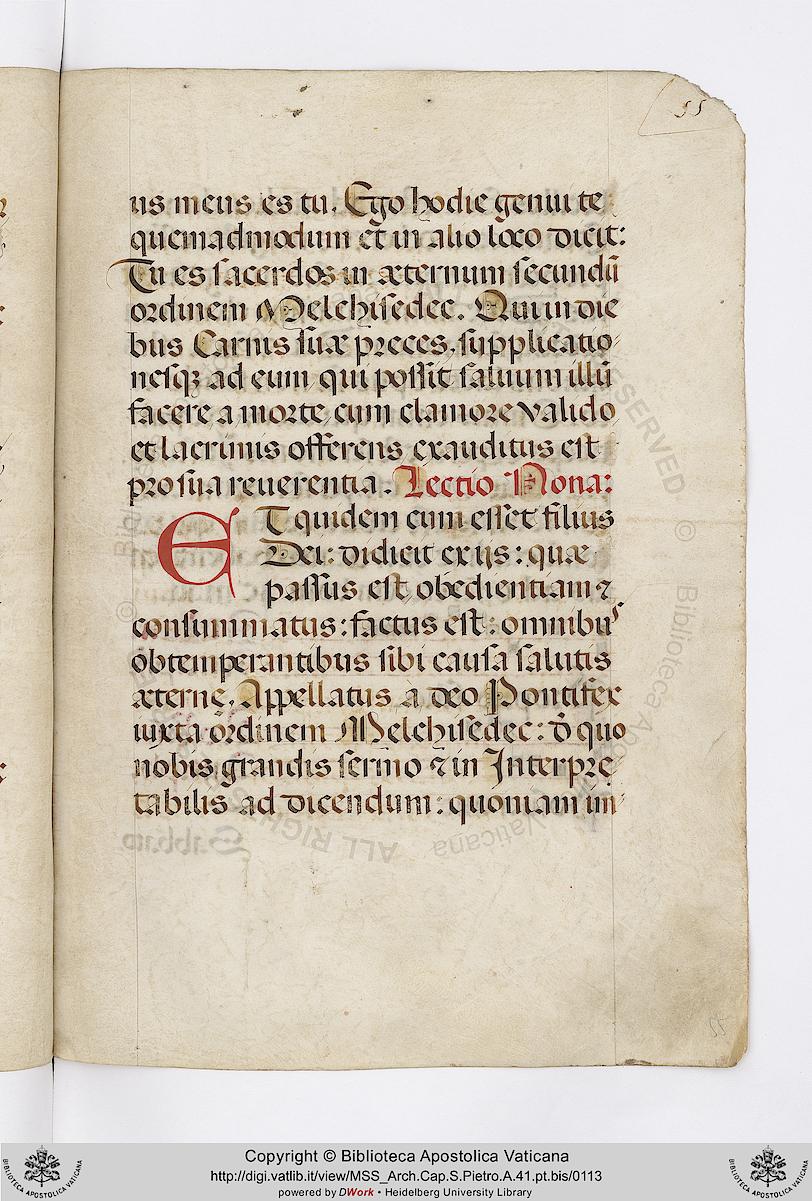 55
us meus es tu. Ego hodie genui te
quemadmodum et in alio loco dicit:
Tu es sacerdos in æternum secundũ
ordinem Melchisedec. Qui in die
bus Carnis suæ preces, supplicatio-
nesqꝫ ad eum, qui possit saluum illũ
facere a morte, cum clamore valido
et lacrimis offerens exauditus est
pro sua reuerentia. Lectio Nona:
ET quidem cum esset filius
Dei: didicit ex ijs: quæ
passus est, obedientiam ⁊
consummatus: factus est: omnibuˢ
obtemperantibus sibi causa salutis
æternę. Appellatus à deo Pontifex
iuxta ordinem Melchisedec: đ quo
nobis grandis sermo ⁊ in Interpre-
tabilis ad dicendum: quoniam im-
55
Copyright © Biblioteca Apostolica Vaticana
http://digi.vatlib.it/view/MSS_Arch.Cap.S.Pietro.A.41.pt.bis/0113
powered by DWork • Heidelberg University Library